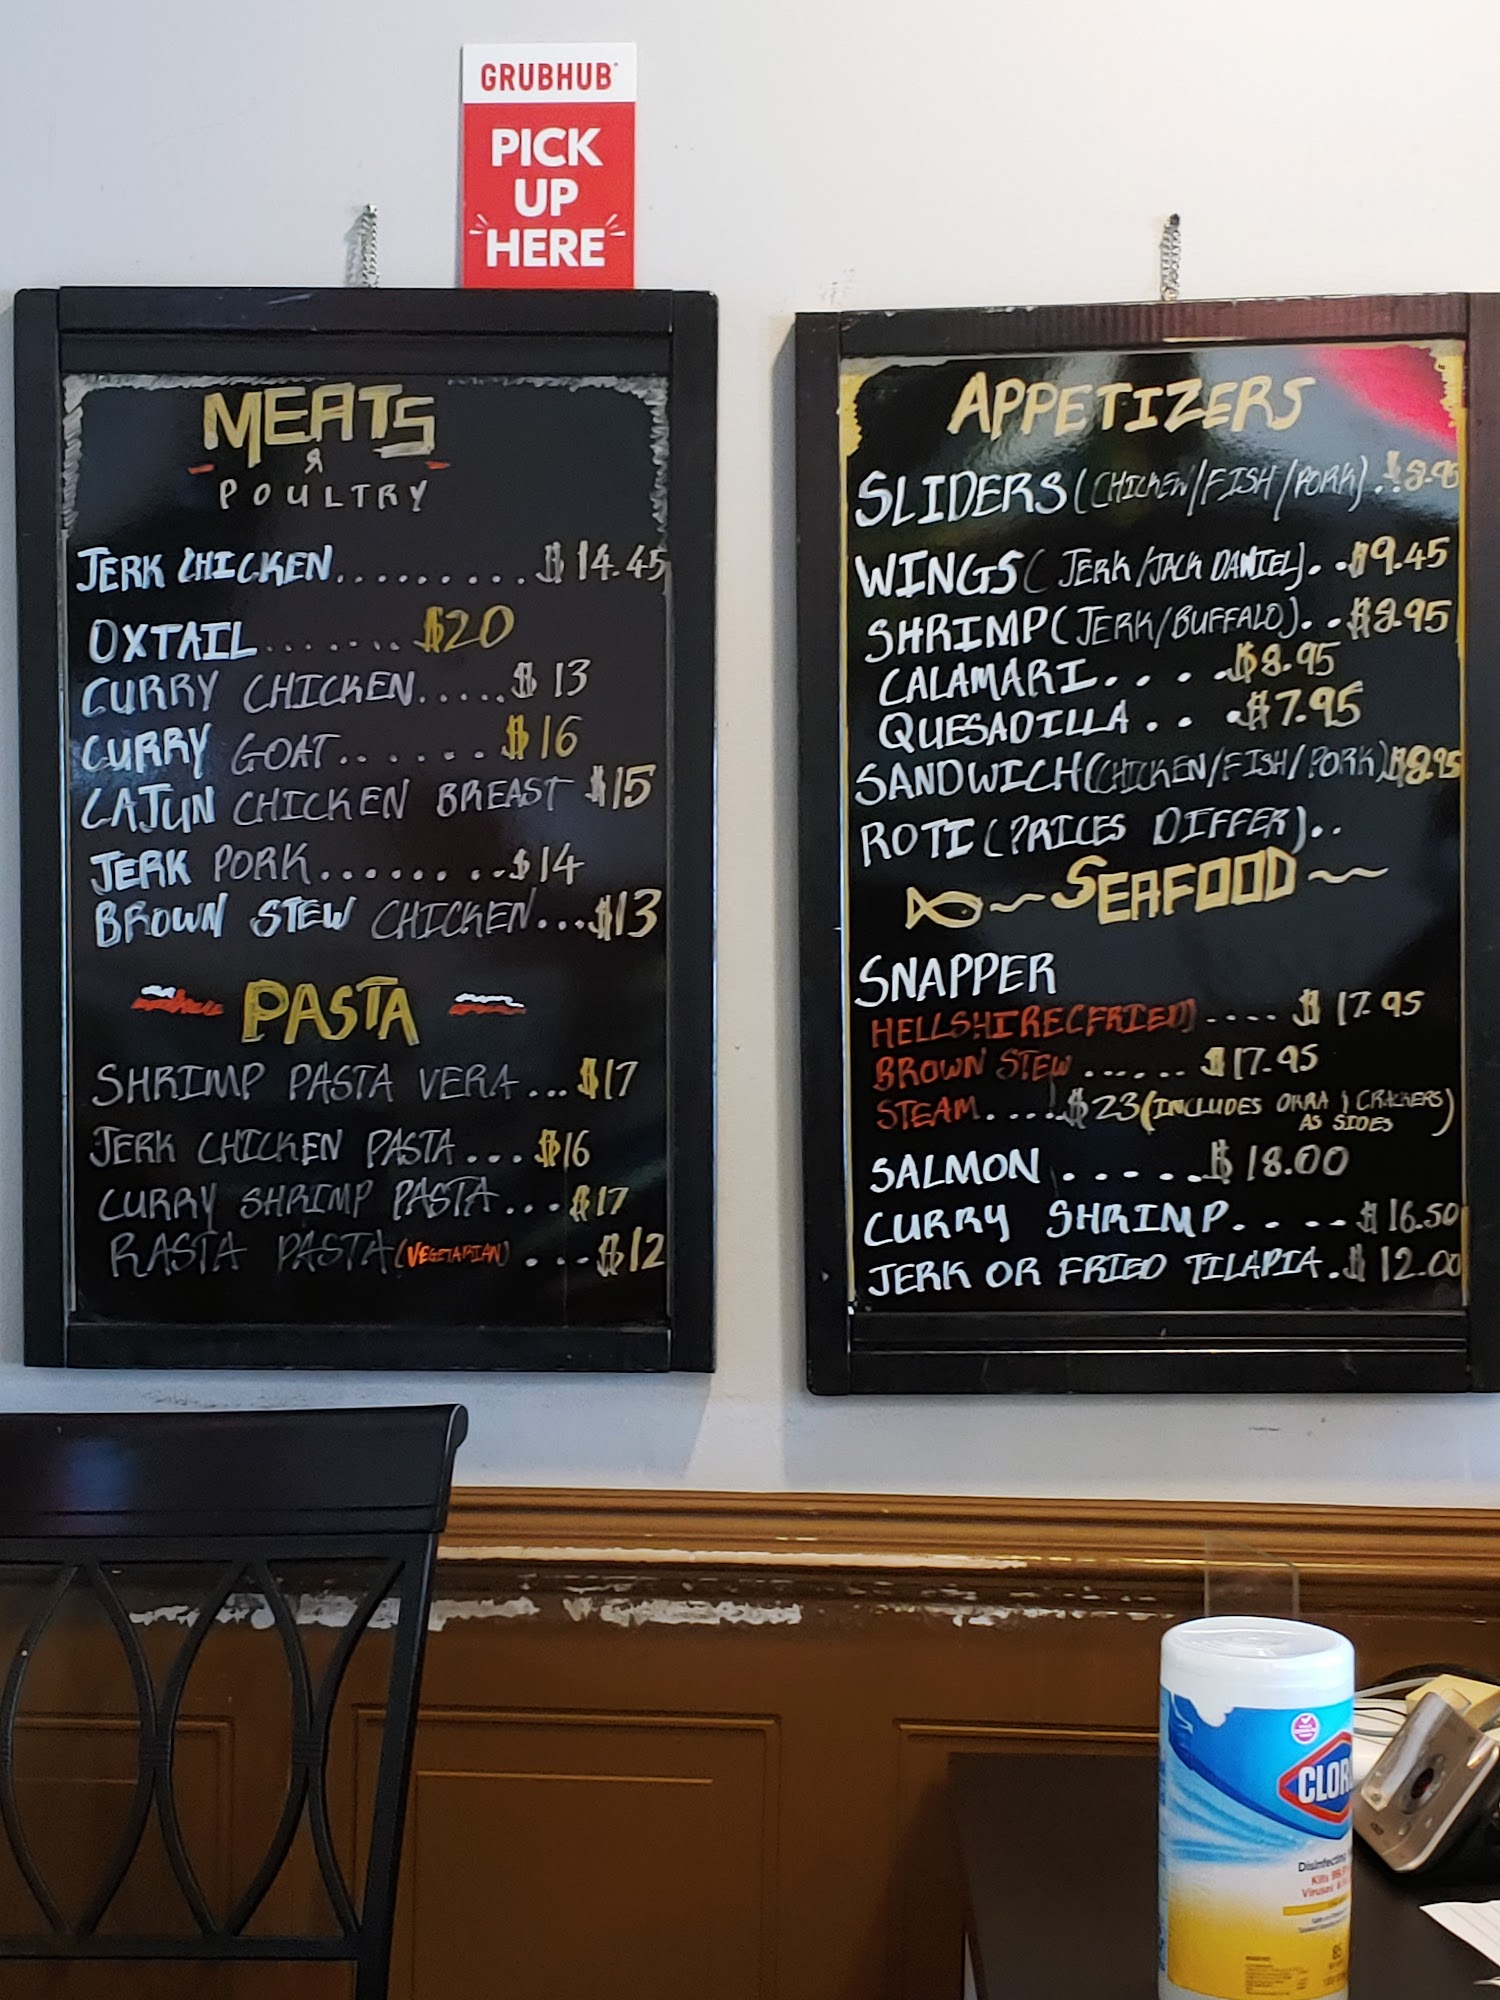 GRUBHUB
PICK
UP
HERE
MEATS
&
POULTRY
JERK CHICKEN.......... $14.45
OXTAIL........ $20
CURRY CHICKEN..... $13
CURRY GOAT....... $16
CAJUN CHICKEN BREAST $15
JERK PORK......... $14
BROWN STEW CHICKEN... $13
PASTA
SHRIMP PASTA VERA ... $17
JERK CHICKEN PASTA... $16
CURRY SHRIMP PASTA... $17
RASTA PASTA (VEGETARIAN) ... $12
APPETIZERS
SLIDERS (CHICKEN/FISH/PORK).
WINGS (JERK/JACK DANIEL).. $9.45
SHRIMP (JERK/BUFFALO)..
CALAMARI.... $8.95
QUESADILLA... $7.95
SANDWICH (CHICKEN/FISH/PORK)
ROTI (PRICES DIFFER)..
SEAFOOD
SNAPPER
HELLSHIRE (FRIED) .... $17.95
BROWN STEW ...... $17.95
STEAM..... $23 (INCLUDES OKRA & CRACKERS)
AS SIDES
SALMON ..... $18.00
CURRY SHRIMP.... $16.50
JERK OR FRIED TILAPIA. $12.00
CLOR
Disinfecting
Kills 99.9
Viruses
85